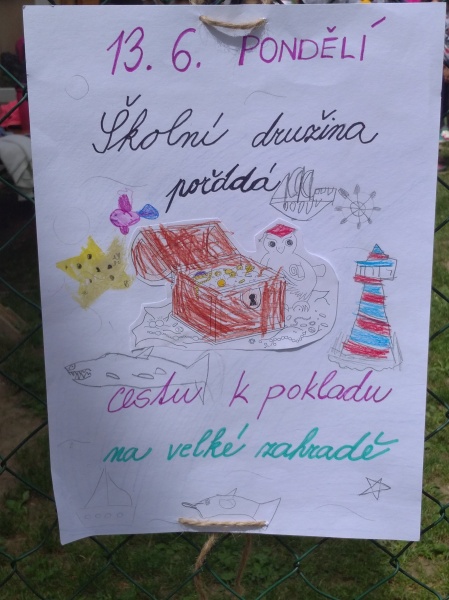 13. 6. PONDĚLÍ
Školní družina
pořádá
cestu k pokladu
na velké zahradě